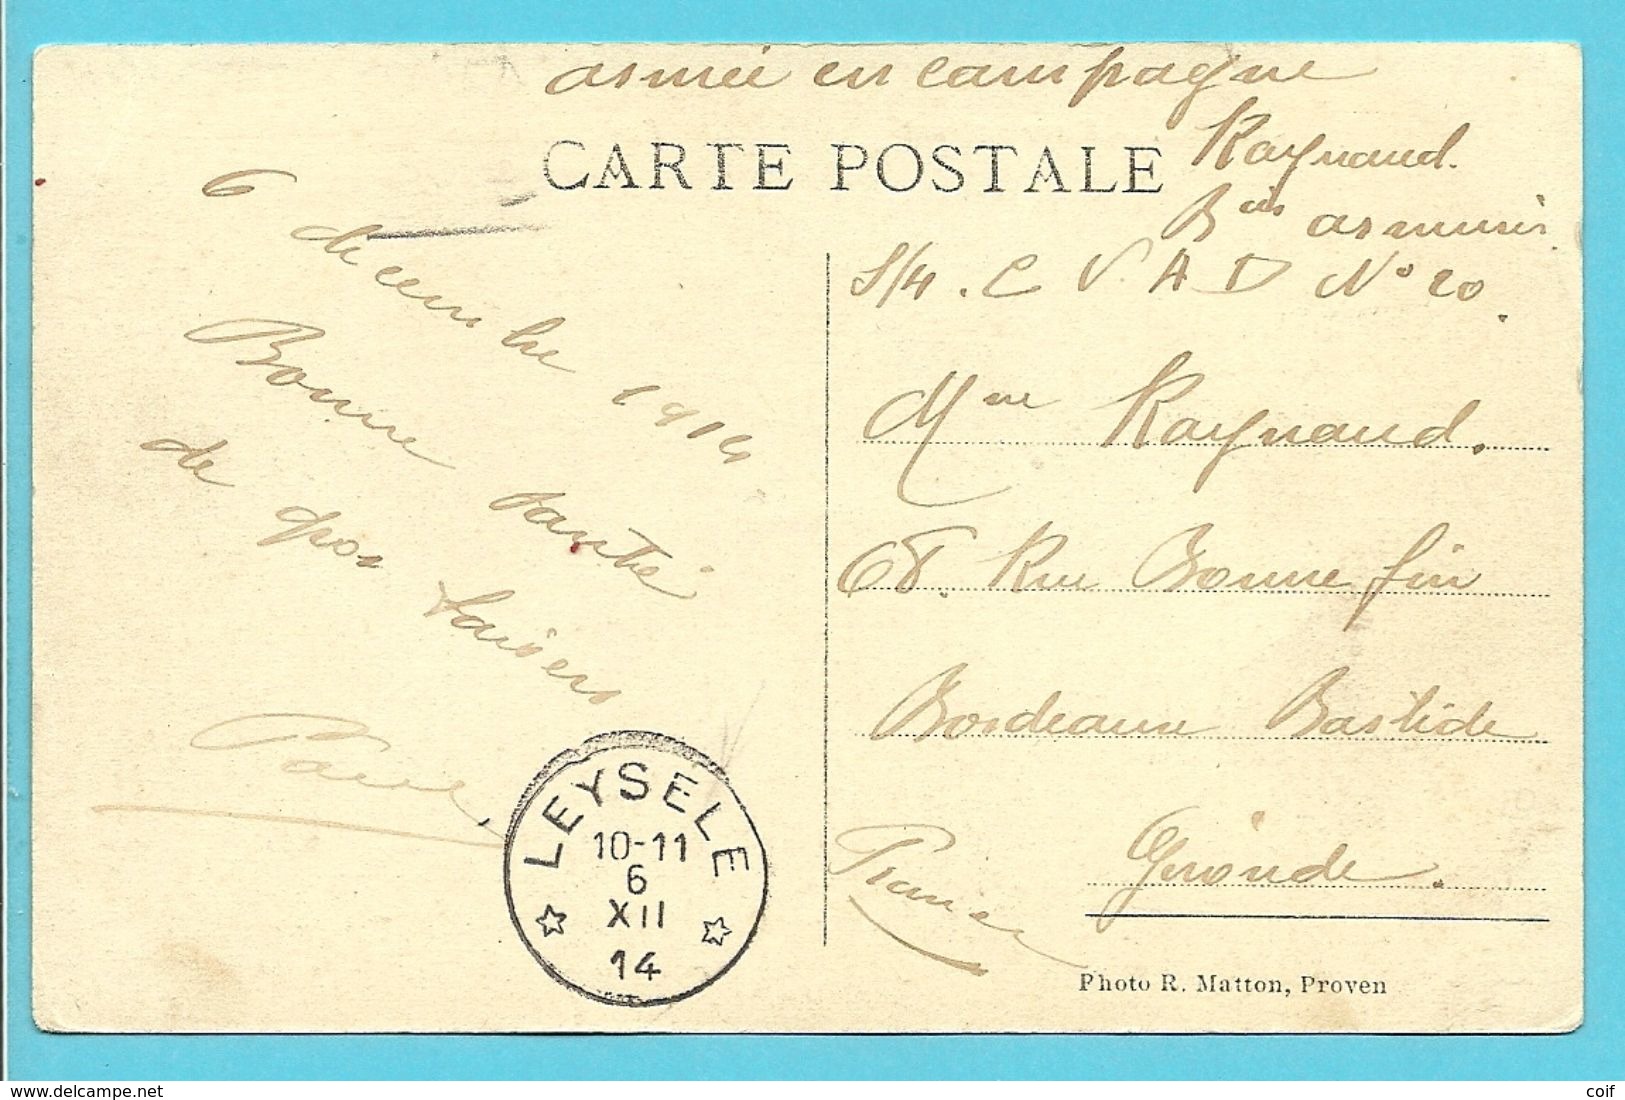 armée en campagne
CARTE POSTALE
Raynaud.
Bon armurier
S/4. C V. A D N° 20.
6 décembre 1914
Bonne santé
de gros baisers
Mme Raynaud.
68. Rue Bonnefin
Bordeaux Bastide
Gironde.
France
LEYSELE
10-11
6
XII
14
Photo R. Matton, Proven
© www.delcampe.net
coif